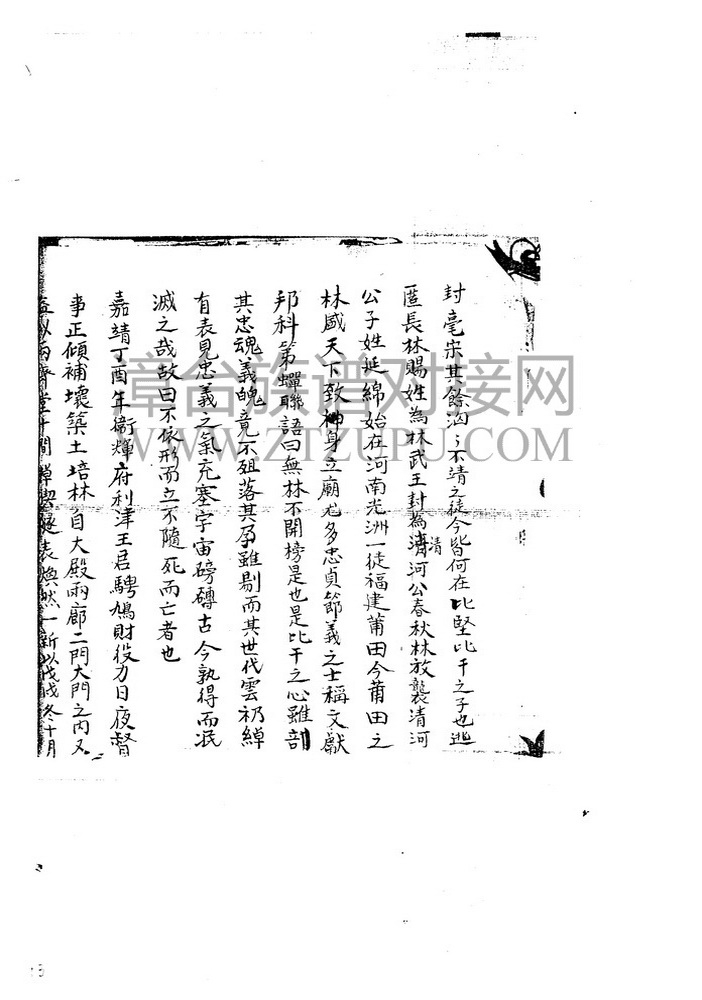 封毫宋其餘汹々不靖之徒今皆何在比堅比干之子也逃
匿長林賜姓為林武王封為清河公春秋林放襲清河
清
公子姓延綿始在河南光洲一徒福建莆田今莆田之
林盛天下致神身立廟尤多忠貞節義之士稱文獻
邦科第蟬聯語曰無林不開榜是也是比干之心雖剖
其忠魂義魄竟不殂落其孕雖剔而其世代雲礽綽
有表見忠義之氣充塞宇宙磅礴古今孰得而泯
滅之哉故曰不依形而立不隨死而亡者也
嘉靖丁酉年衛輝府利津王君騁鳩財役力日夜督
事正傾補壞築土培林自大殿兩廊二門大門之内又
兩齋堂十間綽楔表煥然一新以戊戌冬十月
章台族谱对接网
WWW.ZTZUPU.COM